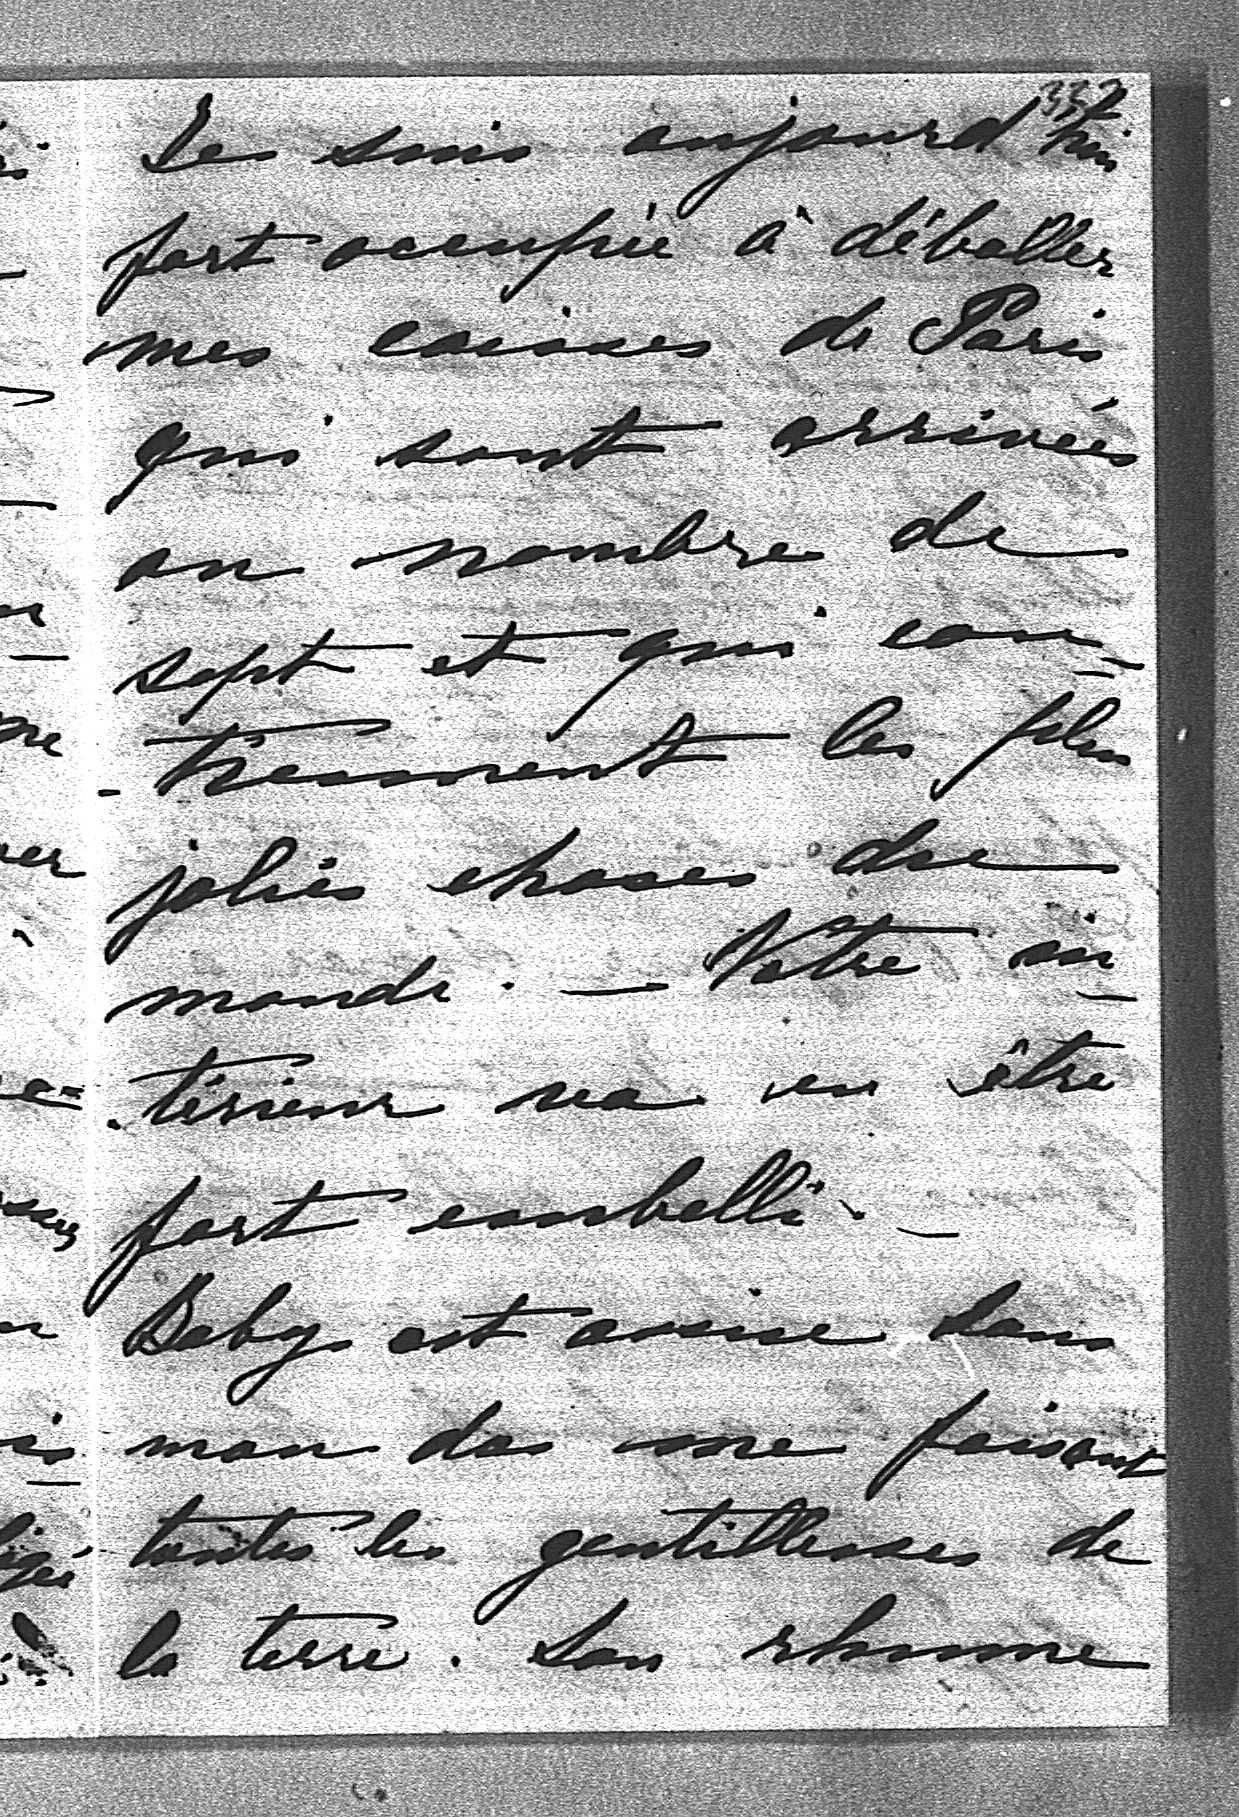 332
Je suis aujourd'hui
fort occupée à déballer
mes caisses de Paris
qui sont arrivées
au nombre de
sept et qui con-
-tiennent les plus
jolies choses du
monde. — Votre in
-térieur va en être
fort embelli. —
Baby est assise dans
mon dos me faisant
toutes les gentillesses de
la terre. Son rhume